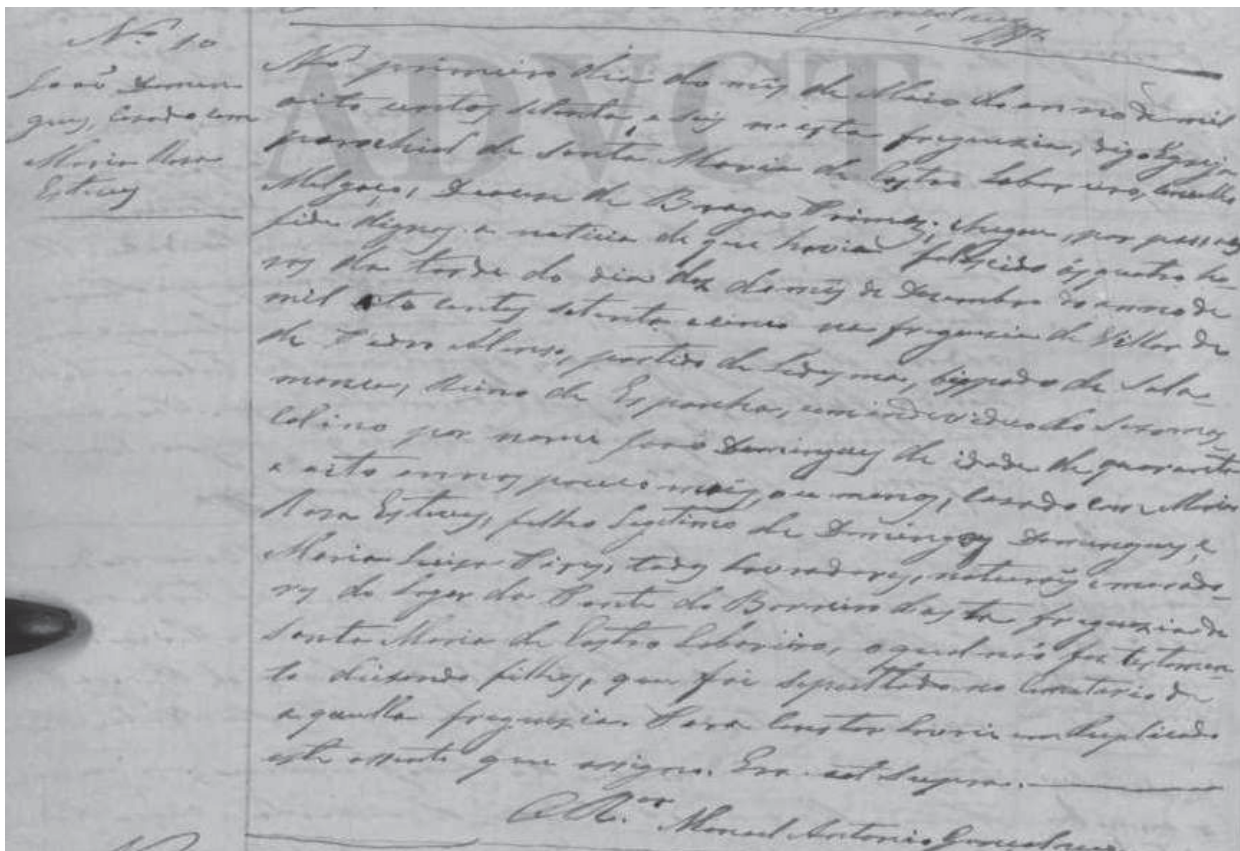 Nº 10
João Domin
gues, casado com
Maria Rosa
Esteves
ADVCT
No primeiro dia do mez de Maio do anno de mil
oito centos setenta e seis nesta freguezia, digo Egreja
parochial de Santa Maria de Castro Laboreiro, concelho
Melgaço, Diocese de Braga Primaz, chegou por pessoas
fide dignas a noticia de que havia fallecido ás quatro ho
ras da tarde do dia dez do mez de Dezembro do anno de
mil oito centos setenta e cinco na freguezia de Villar de
de Pedro Alonso, partido de Ledesma, bispado de Sala
manca, Reino de Espanha, um individuo do sexo mas
colino por nome João Domingues de idade de quarenta
e oito annos pouco mais, ou menos, casado com Maria
Rosa Esteves, filho legitimo de Domingos Domingues, e
Maria Luiza Pires, todos lavradores, naturaes e morado
res do logar da Ponte do Barreiro desta freguezia de
Santa Maria de Castro Laboreiro, o qual não fez testamen
to deixando filhos, que foi sepultado no cemiterio de
aquella freguezia. Para constar lavrei em duplicado
este assento que assigno. Era ut supra.
Manoel Antonio Gonsalves